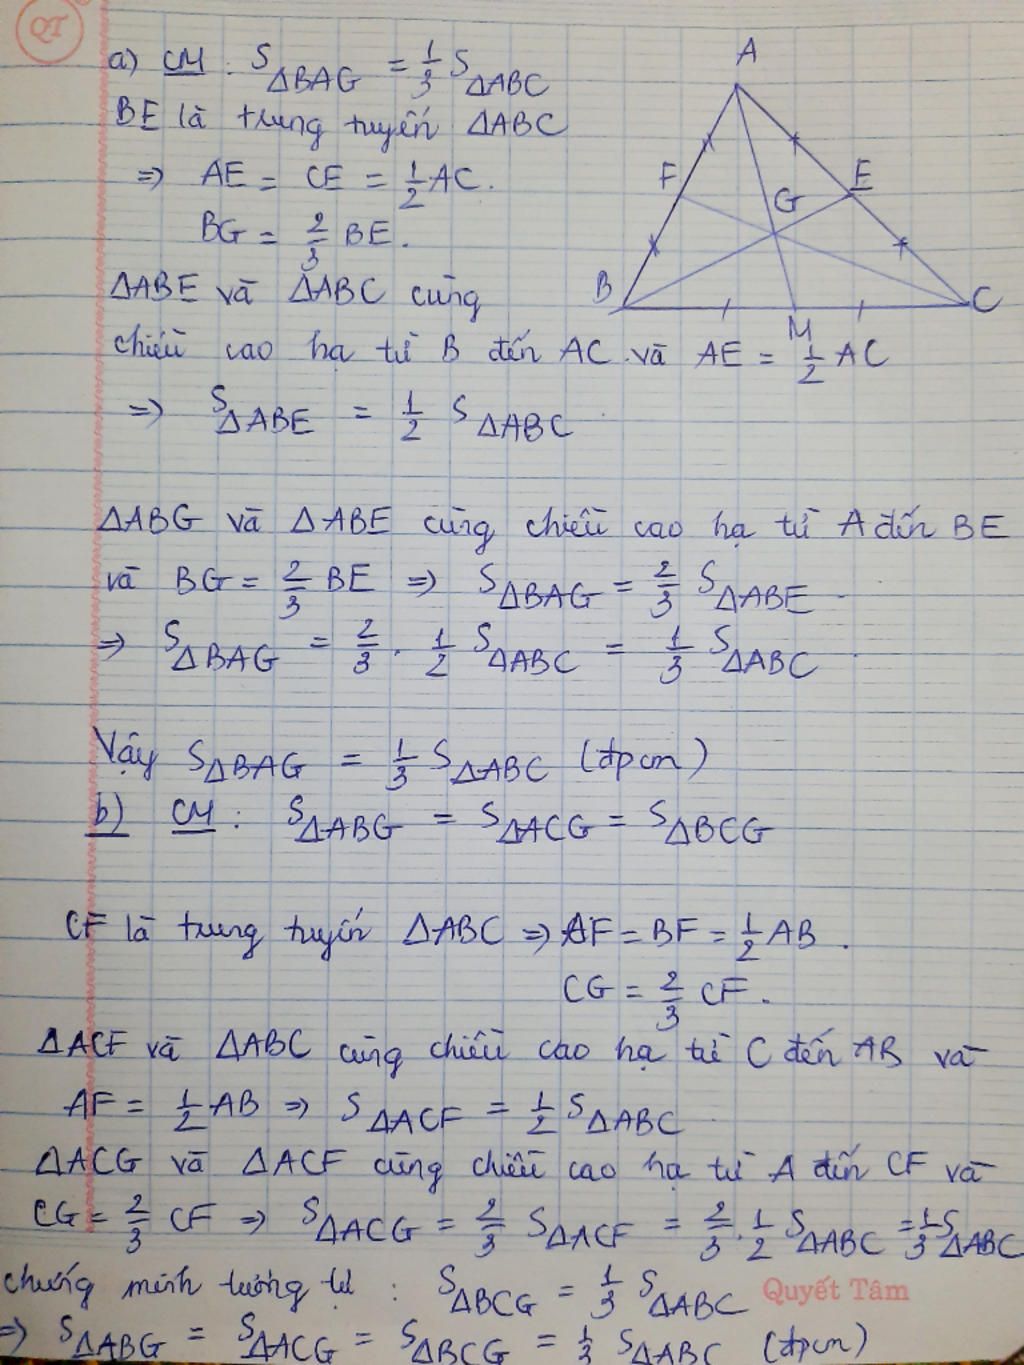 QT
a) CM : S ΔBAG = 1/3 S ΔABC
A
BE là trung tuyến ΔABC
⇒ AE = CE = 1/2 AC.
F E
G
BG = 2/3 BE.
ΔABE và ΔABC cùng
B C
M
chiều cao hạ từ B đến AC và AE = 1/2 AC
⇒ S ΔABE = 1/2 S ΔABC
ΔABG và ΔABE cùng chiều cao hạ từ A đến BE
và BG = 2/3 BE ⇒ S ΔBAG = 2/3 S ΔABE
⇒ S ΔBAG = 2/3 . 1/2 S ΔABC = 1/3 S ΔABC
Vậy S ΔBAG = 1/3 S ΔABC (đpcm)
b) CM : S ΔABG = S ΔACG = S ΔBCG
CF là trung tuyến ΔABC ⇒ AF = BF = 1/2 AB.
CG = 2/3 CF.
ΔACF và ΔABC cùng chiều cao hạ từ C đến AB và
AF = 1/2 AB ⇒ S ΔACF = 1/2 S ΔABC
ΔACG và ΔACF cùng chiều cao hạ từ A đến CF và
CG = 2/3 CF ⇒ S ΔACG = 2/3 S ΔACF = 2/3 . 1/2 S ΔABC = 1/3 S ΔABC
chứng minh tương tự : S ΔBCG = 1/3 S ΔABC
Quyết Tâm
⇒ S ΔABG = S ΔACG = S ΔBCG = 1/3 S ΔABC (đpcm)